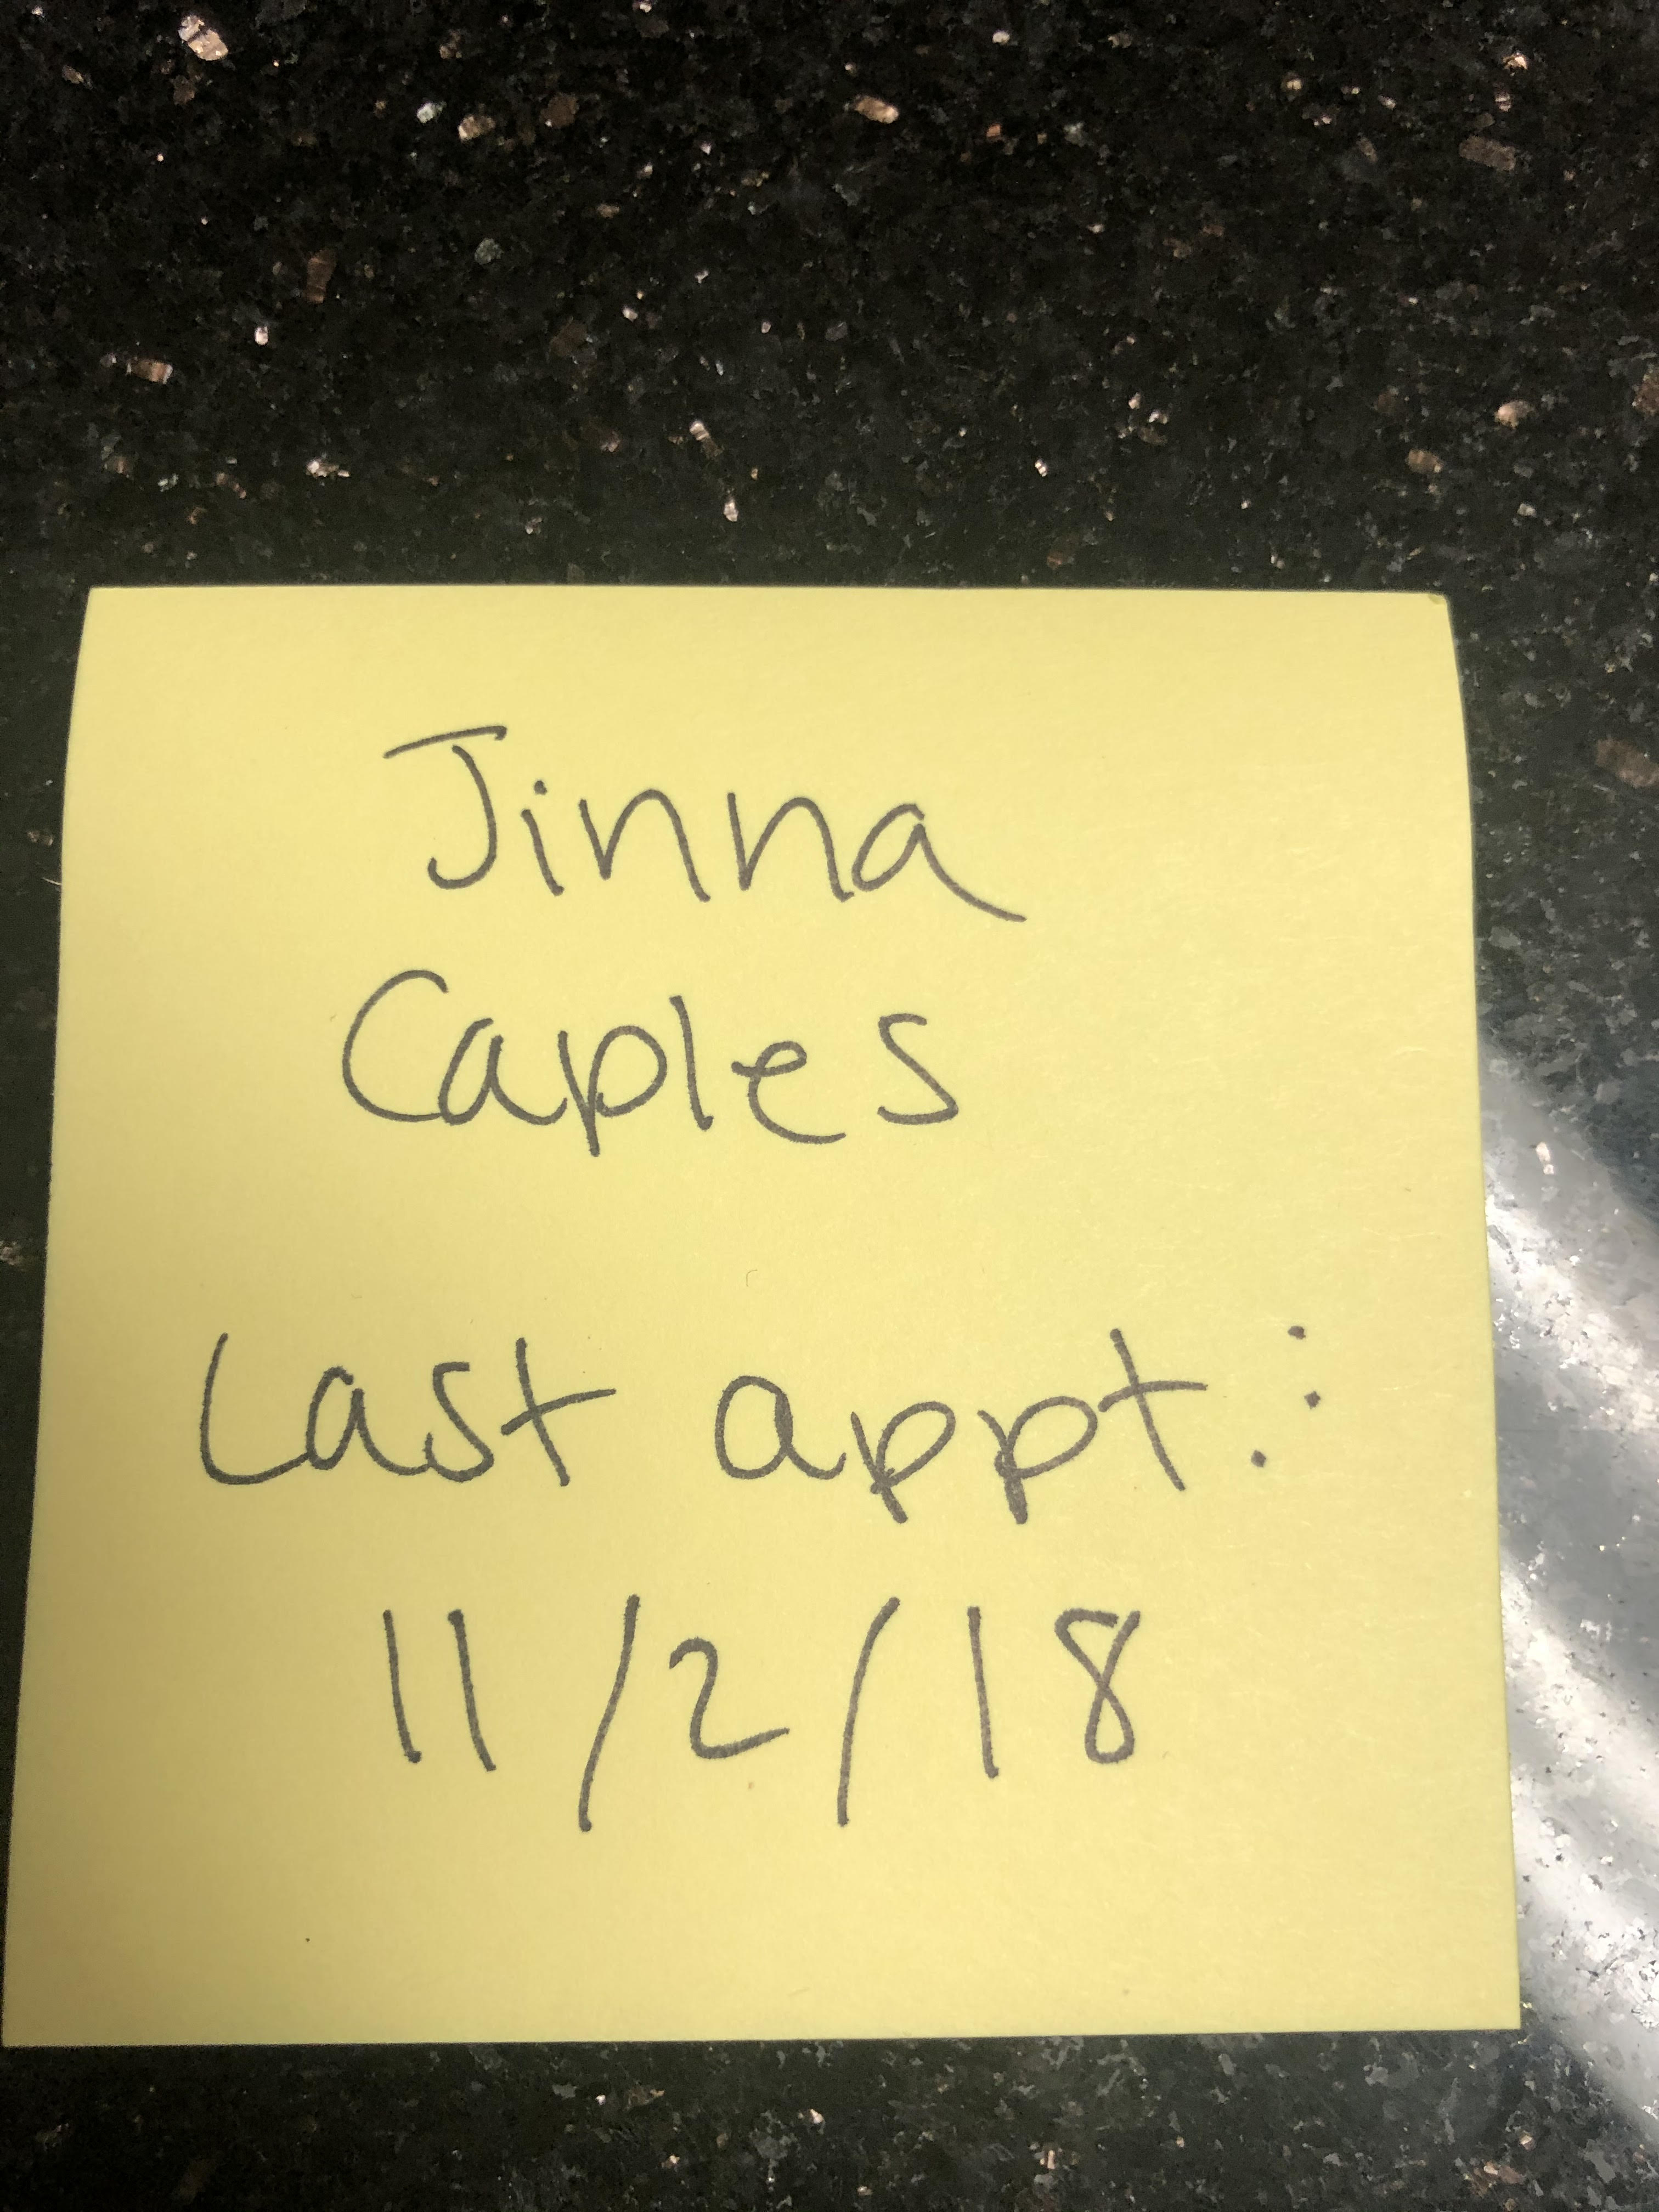 Jinna
Caples
Last appt:
11/2/18